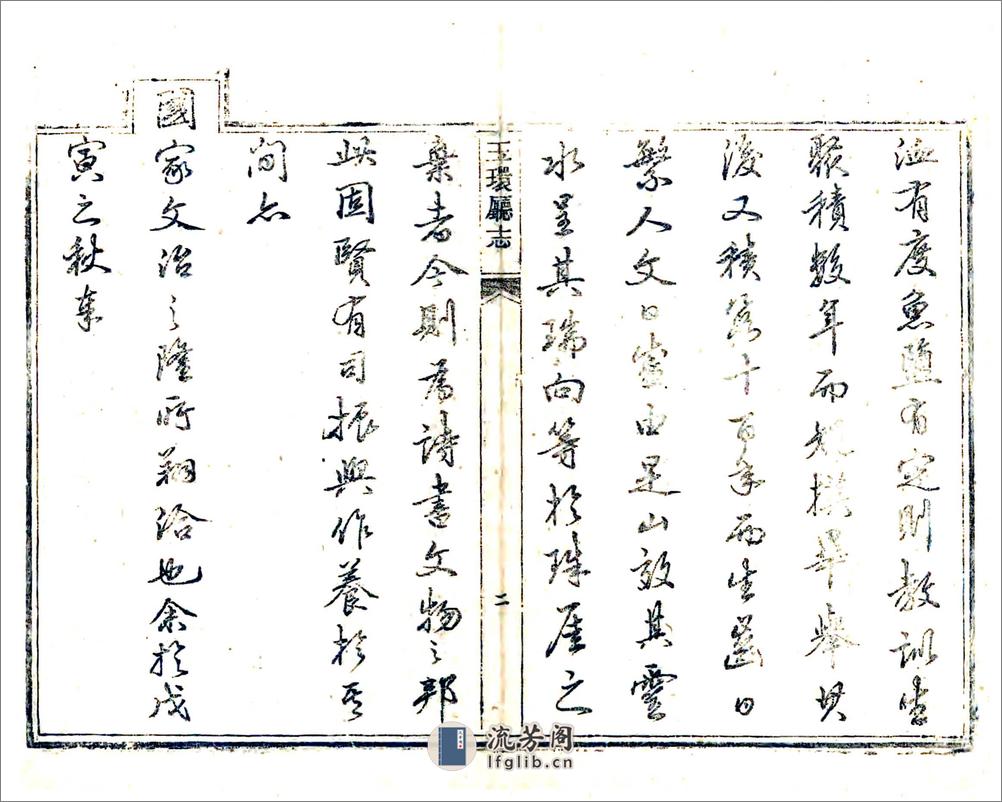 洫有度魚鹽有定則教訓生
聚積數年而規模畢舉其
後又積十百年而生齒日
繁人文日盛由是山效其靈
水呈其瑞向等於珠厓之
玉環廳志
二
棄者今則為詩書文物之邦
此固賢有司振興作養於其
間亦
國家文治之隆所翔洽也余於戊
寅之秋奉
流芳阁
lfglib.cn